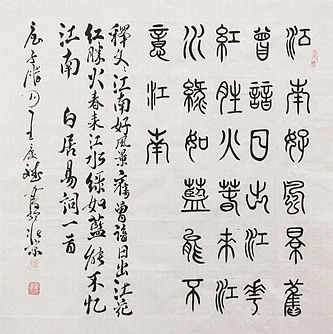 江南好風景舊
曾諳日出江花
紅勝火春來江
水綠如藍能不
意江南
釋文江南好風景舊曾諳日出江花
紅勝火春來江水綠如藍能不忆
江南 白居易詞一首